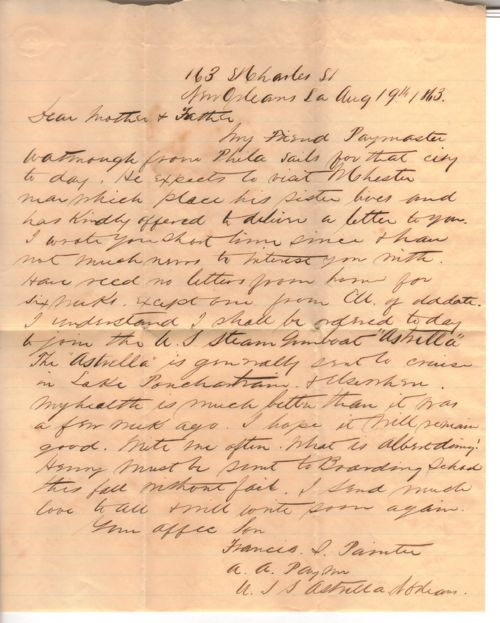 163 St Charles St
New Orleans La Aug 19th / 63.
Dear Mother & Father
My Friend Paymaster
Watmough from Phila sails for that city
to day. He expects to visit W Chester
near which place his sister lives and
has kindly offered to deliver a letter to you.
I wrote you short time since & have
not much news to interest you with.
Have recd no letters from home for
six weeks. except one from of old date.
I understand I shall be ordered to day
to join the U. S Steam Gunboat "Estrella"
The "Estrella" is generally sent to cruise
in Lake Ponchartrain. & elsewhere.
My health is much better than it was
a few week ago. I hope it will remain
good. Write me often. What is Albert doing?
Henry must be sent to Boarding School
this fall without fail. I send much
love to all & will write soon again.
Your affec Son
Francis. I. Painter
A. A. Paym
U. S S Estrella N Orleans.